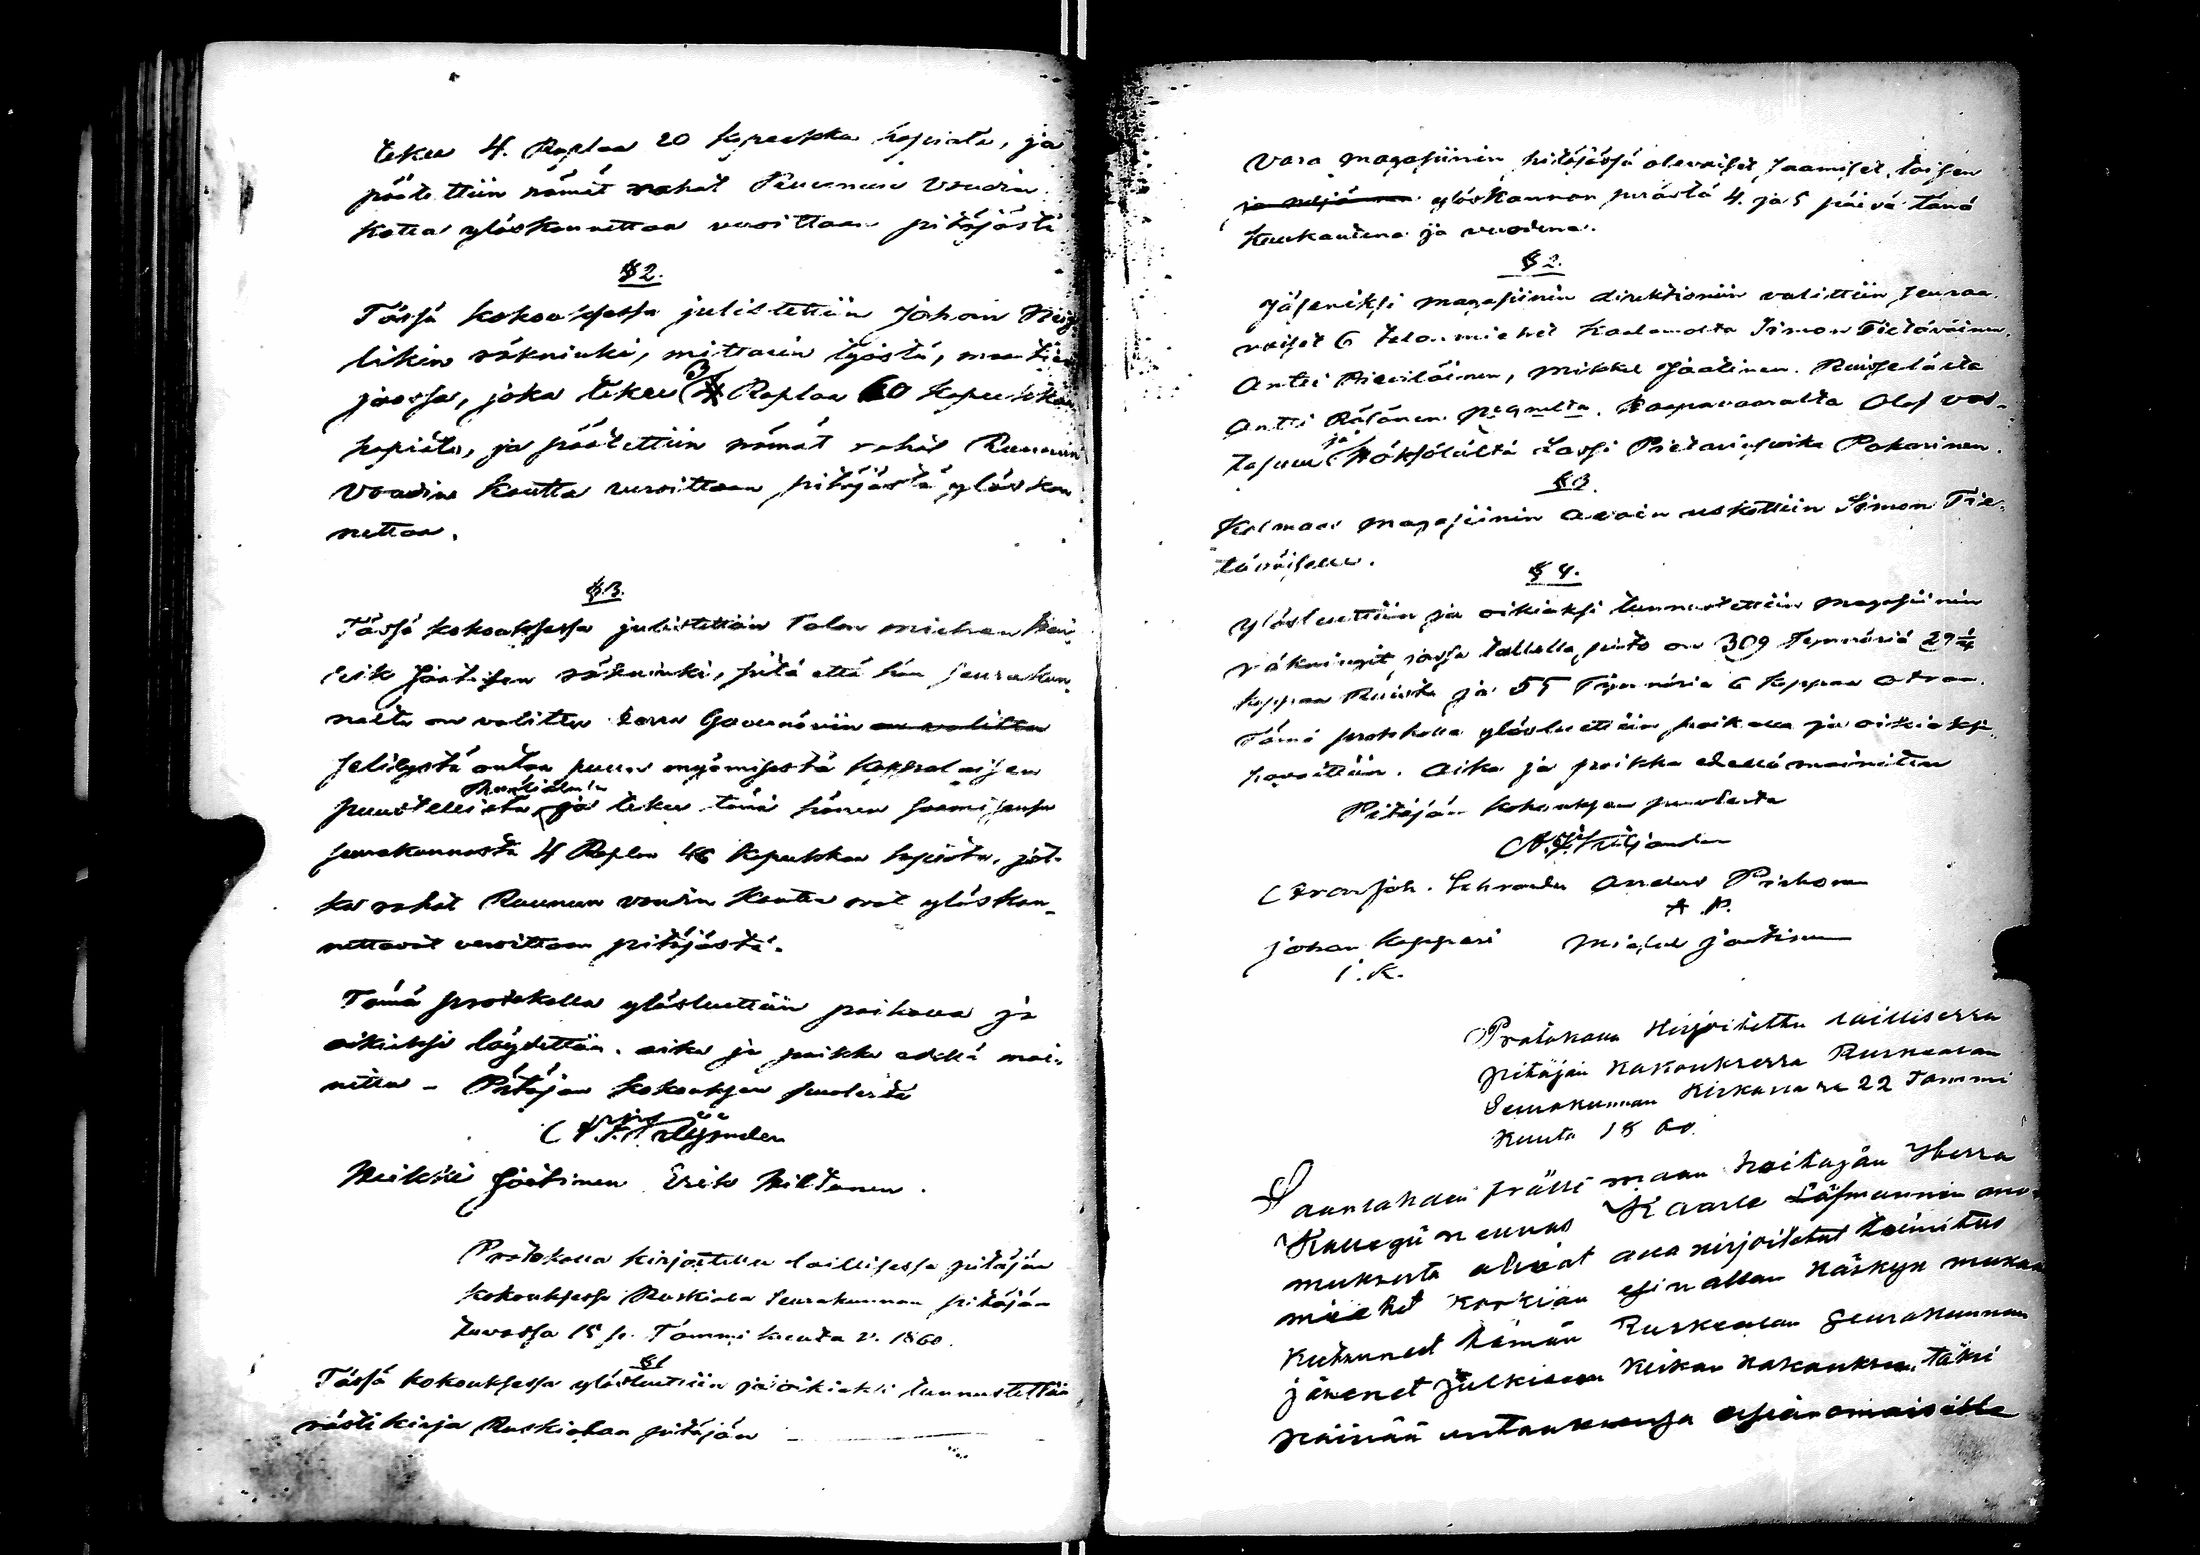 tekee 4. Ruplaa 20 kopeekka hopiata, ja
päätettiin nämät rahat Ruununu Voudin
kotta ylöskannettaa veroittaan pitäjästä
§ 2.
Tässä kokouksessa julistettiin Johan
likin räkninki, mittarin työstä,
jaossa, joka tekee 3 Ruplaa 60 kopeekkaa
hopiata, ja päätettiin nämät rahat Ruunun
Voudin kautta veroittaan pitäjästä ylöskan
nettaa.
§ 3.
Tässä kokouksessa julistettiin Talon miehen
rik Jäätisen räkninki, siitä että hän seurakun,
nalta on valittu Herra Guvernöriin on valittu
selitystä antaa puun myömisestä kappalaisen
puustellista ja tekee tämä hänen saamisensa
seurakunnasta 4 Ruplaa 46 kopeekkaa hopiata, jot-
ka rahat Ruunun voudin kautta ovat ylöskan-
nettavat veroittaan pitäjästä.
Tämä protokolla ylösluettiin paikalla ja
oikiaksi löydettiin. aika ja paikka edellä mai-
nittu - Pitäjän kokouksen puolesta
Heikki Jäätinen Erik Miltonen.
Protokolla kirjoitettu laillisessa pitäjän
kokouksessa Ruskiala Seurakunnan pitäjän
tuvassa 15 p. Tammi kuuta v. 1860.
§ 1
Tässä kokouksessa ylösluettiin ja oikiaksi tunnustettiin
rästi kirja Ruskialan pitäjän
Vara magasiinin pitäjässä olevaiset saamiset, toisen
ja neljännen ylöskannon perästä 4. ja 5 päivä tänä
kuukautena ja vuodena.
§ 2.
Jäseniksi magasiinin direktioniin valittiin seuraa.
vaiset 6 talon miehet Kaalamolta Simon Tietäväinen,
Antti Pieviläinen, Mikkel Jäätinen. Ruisselästä
Antti Räsänen, Kaapavaaralta Olof Vas-
ja Höksölältä Lassi Pietarinpoika Pakarinen.
§ 3.
Kolmas magasiinin avain uskottiin Simon Tie-
täväiselle.
§ 4.
Ylösluettiin ja oikiaksi tunnustettiin magasiinin
räkningit, jossa tallella pinto on 309 Tynnöriä 29 1/4
kappaa Ruista ja 55 Tynnöriä 6 kappaa otraa.
Tämä protokolla ylösluettiin paikalla ja oikiaksi
havaittiin. Aika ja paikka edellä mainittu
Pitäjän kokouksen puolesta
Joh. Schroder Anders Pirhonen
A. P.
Johan Kapperi Michel Jäätinen
I. K.
Protokolla kirjoitettu laillisessa
pitäjän kokouksessa Ruskealan
Seurakunnan Kirkossa 22 Tammi
kuuta 1860.
maan hoitajan Herra
Kollegii neuvos Kaarle Läfmannin ano-
muksesta olivat alla kirjoitetut toimitus
miehet korkian esivallan käskyn mukaan
kutsuneet tämän Ruskealan Seurakunnan
jäsenet julkiseen kokouksen, täksi
päivää antaaksensa asianomaisille